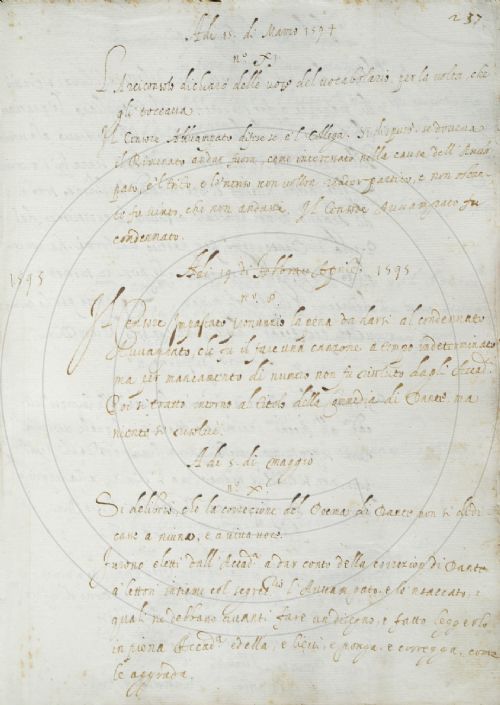 237
Adi 15. di Marzo 1594
nº XI
L'Arciconsolo dichiarò delle voci del vocabolario, per la volta, che
gli toccava.
Il Censore Avvampato difese se, e 'l Collega. Si disputò se doveva
il Rimenato andar fuora, come interessato nella causa dell'Avvam
pato, e 'l Trito, e lo 'nferno non vollon
to fu vinto, che non andassi. Il Censore Avvampato fu
condennato.
1595
Adi 19 di Aprile 1595
nº 8.
Il Censore Impastato pronunziò la pena da darsi al condennato
Avvampato, che fu il fare una canzone a tempo indeterminato
ma per mancamento di numero non fu risoluto dagli Accad.
Poi si trattò intorno al titolo della Commedia di Dante, ma
niente si risolvé.
Adi 5. di Maggio
nº X
Si deliberò, che la correzione del Poema di Dante non si dedi
casse a niuno, e a viva voce.
Furono eletti dall'Accadª a dar conto della correzion di Dante
a' lettori insieme col segretº l'Avvampato, e lo 'nsaccato, i
quali ne debbano avanti fare un disegno, e fatto leggerlo
in piena Accadª ed ella, e levi, e ponga, e corregga, come
le aggrada.